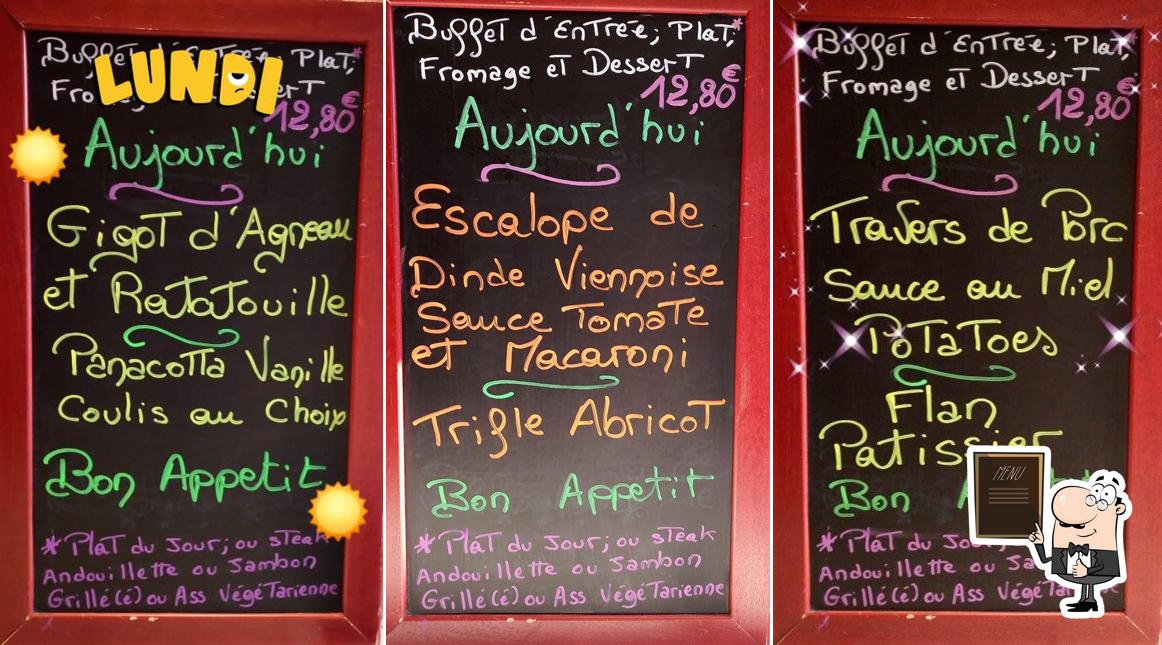 Buffet d'Entrée, Plat,*
LUNDI
Fromage et Dessert
12,80€
Aujourd'hui
Gigot d'Agneau
et Ratatouille
Panacotta Vanille
Coulis au Choix
Bon Appetit
*Plat du Jour; ou steak
Andouillette ou Jambon
Grillé(é) ou Ass VégéTarienne
Buffet d'Entrée, Plat,*
Fromage et Dessert
12,80€
Aujourd'hui
Escalope de
Dinde Viennoise
Sauce Tomate
et Macaroni
Trifle Abricot
Bon Appetit
*Plat du Jour; ou steak
Andouillette ou Jambon
Grillé(é) ou Ass VégéTarienne
Buffet d'Entrée, Plat,*
Fromage et Dessert
12,80€
Aujourd'hui
Travers de Porc
Sauce au Miel
Potatoes
Flan
Patissier
MENU
Bon
*Plat du
Andouillette ou
Grillé(é) ou Ass